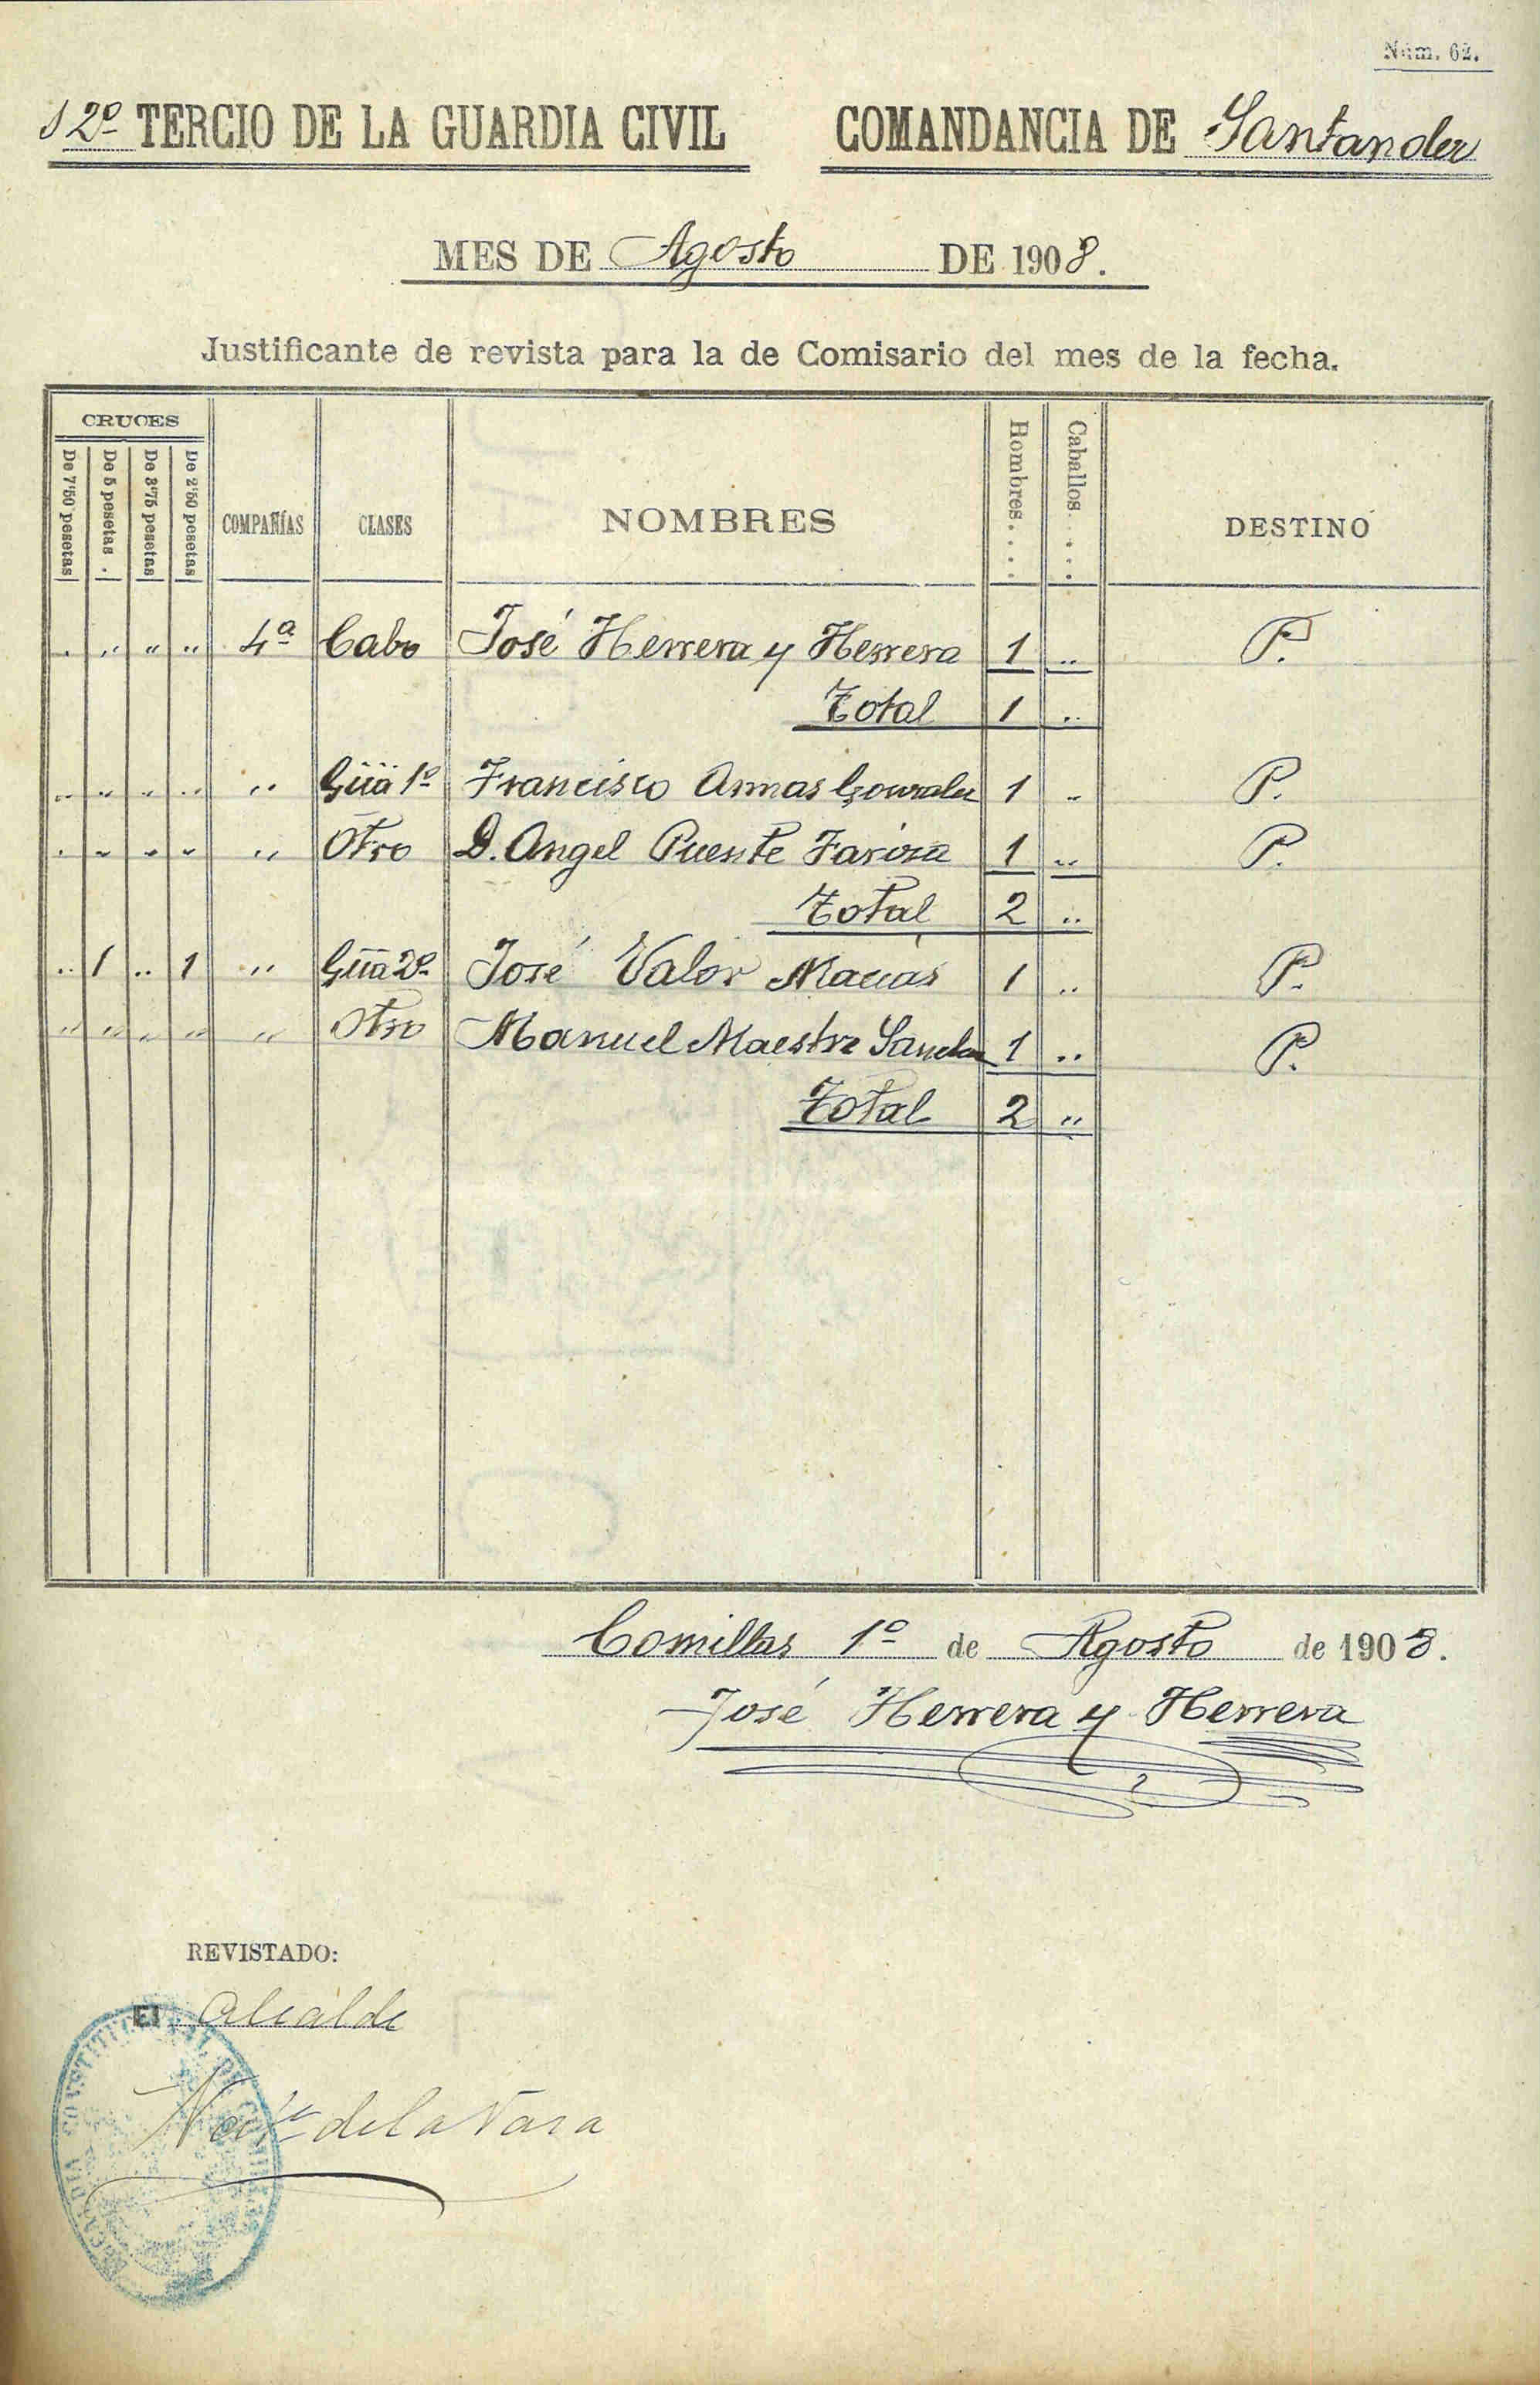 Núm. 62.
12º TERCIO DE LA GUARDIA CIVIL COMANDANCIA DE Santander
MES DE Agosto DE 1908.
Justificante de revista para la de Comisario del mes de la fecha.
CRUCES
De 7'50 pesetas De 5 pesetas . De 3'75 pesetas De 2'50 pesetas COMPAÑÍAS CLASES NOMBRES Hombres. . . . Caballos. . . . DESTINO
. " " " 4ª Cabo José Herrera y Herrera 1 " P.
Total 1 "
" " " " " Güa 1º Francisco Armas Gonzalez 1 " P.
" " " " " Otro D. Angel Puente 1 " P.
Total 2 "
" 1 " 1 " Güa 2º José Valor Macías 1 " P.
" " " " " Otro Manuel Maestre Sanchez 1 " P.
Total 2 "
Comillas 1º de Agosto de 1908.
José Herrera y Herrera
REVISTADO:
El Alcalde
de la Vara
ALCALDIA CONSTITUCIONAL DE COMILLAS